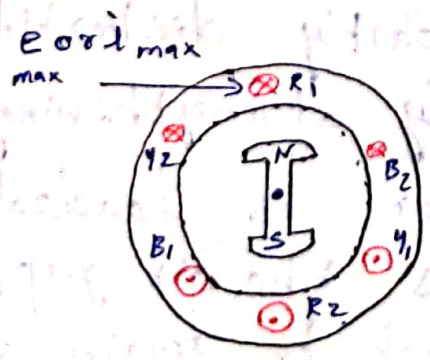 e or i max
max
R1
Y2
N
B2
S
B1
Y1
R2